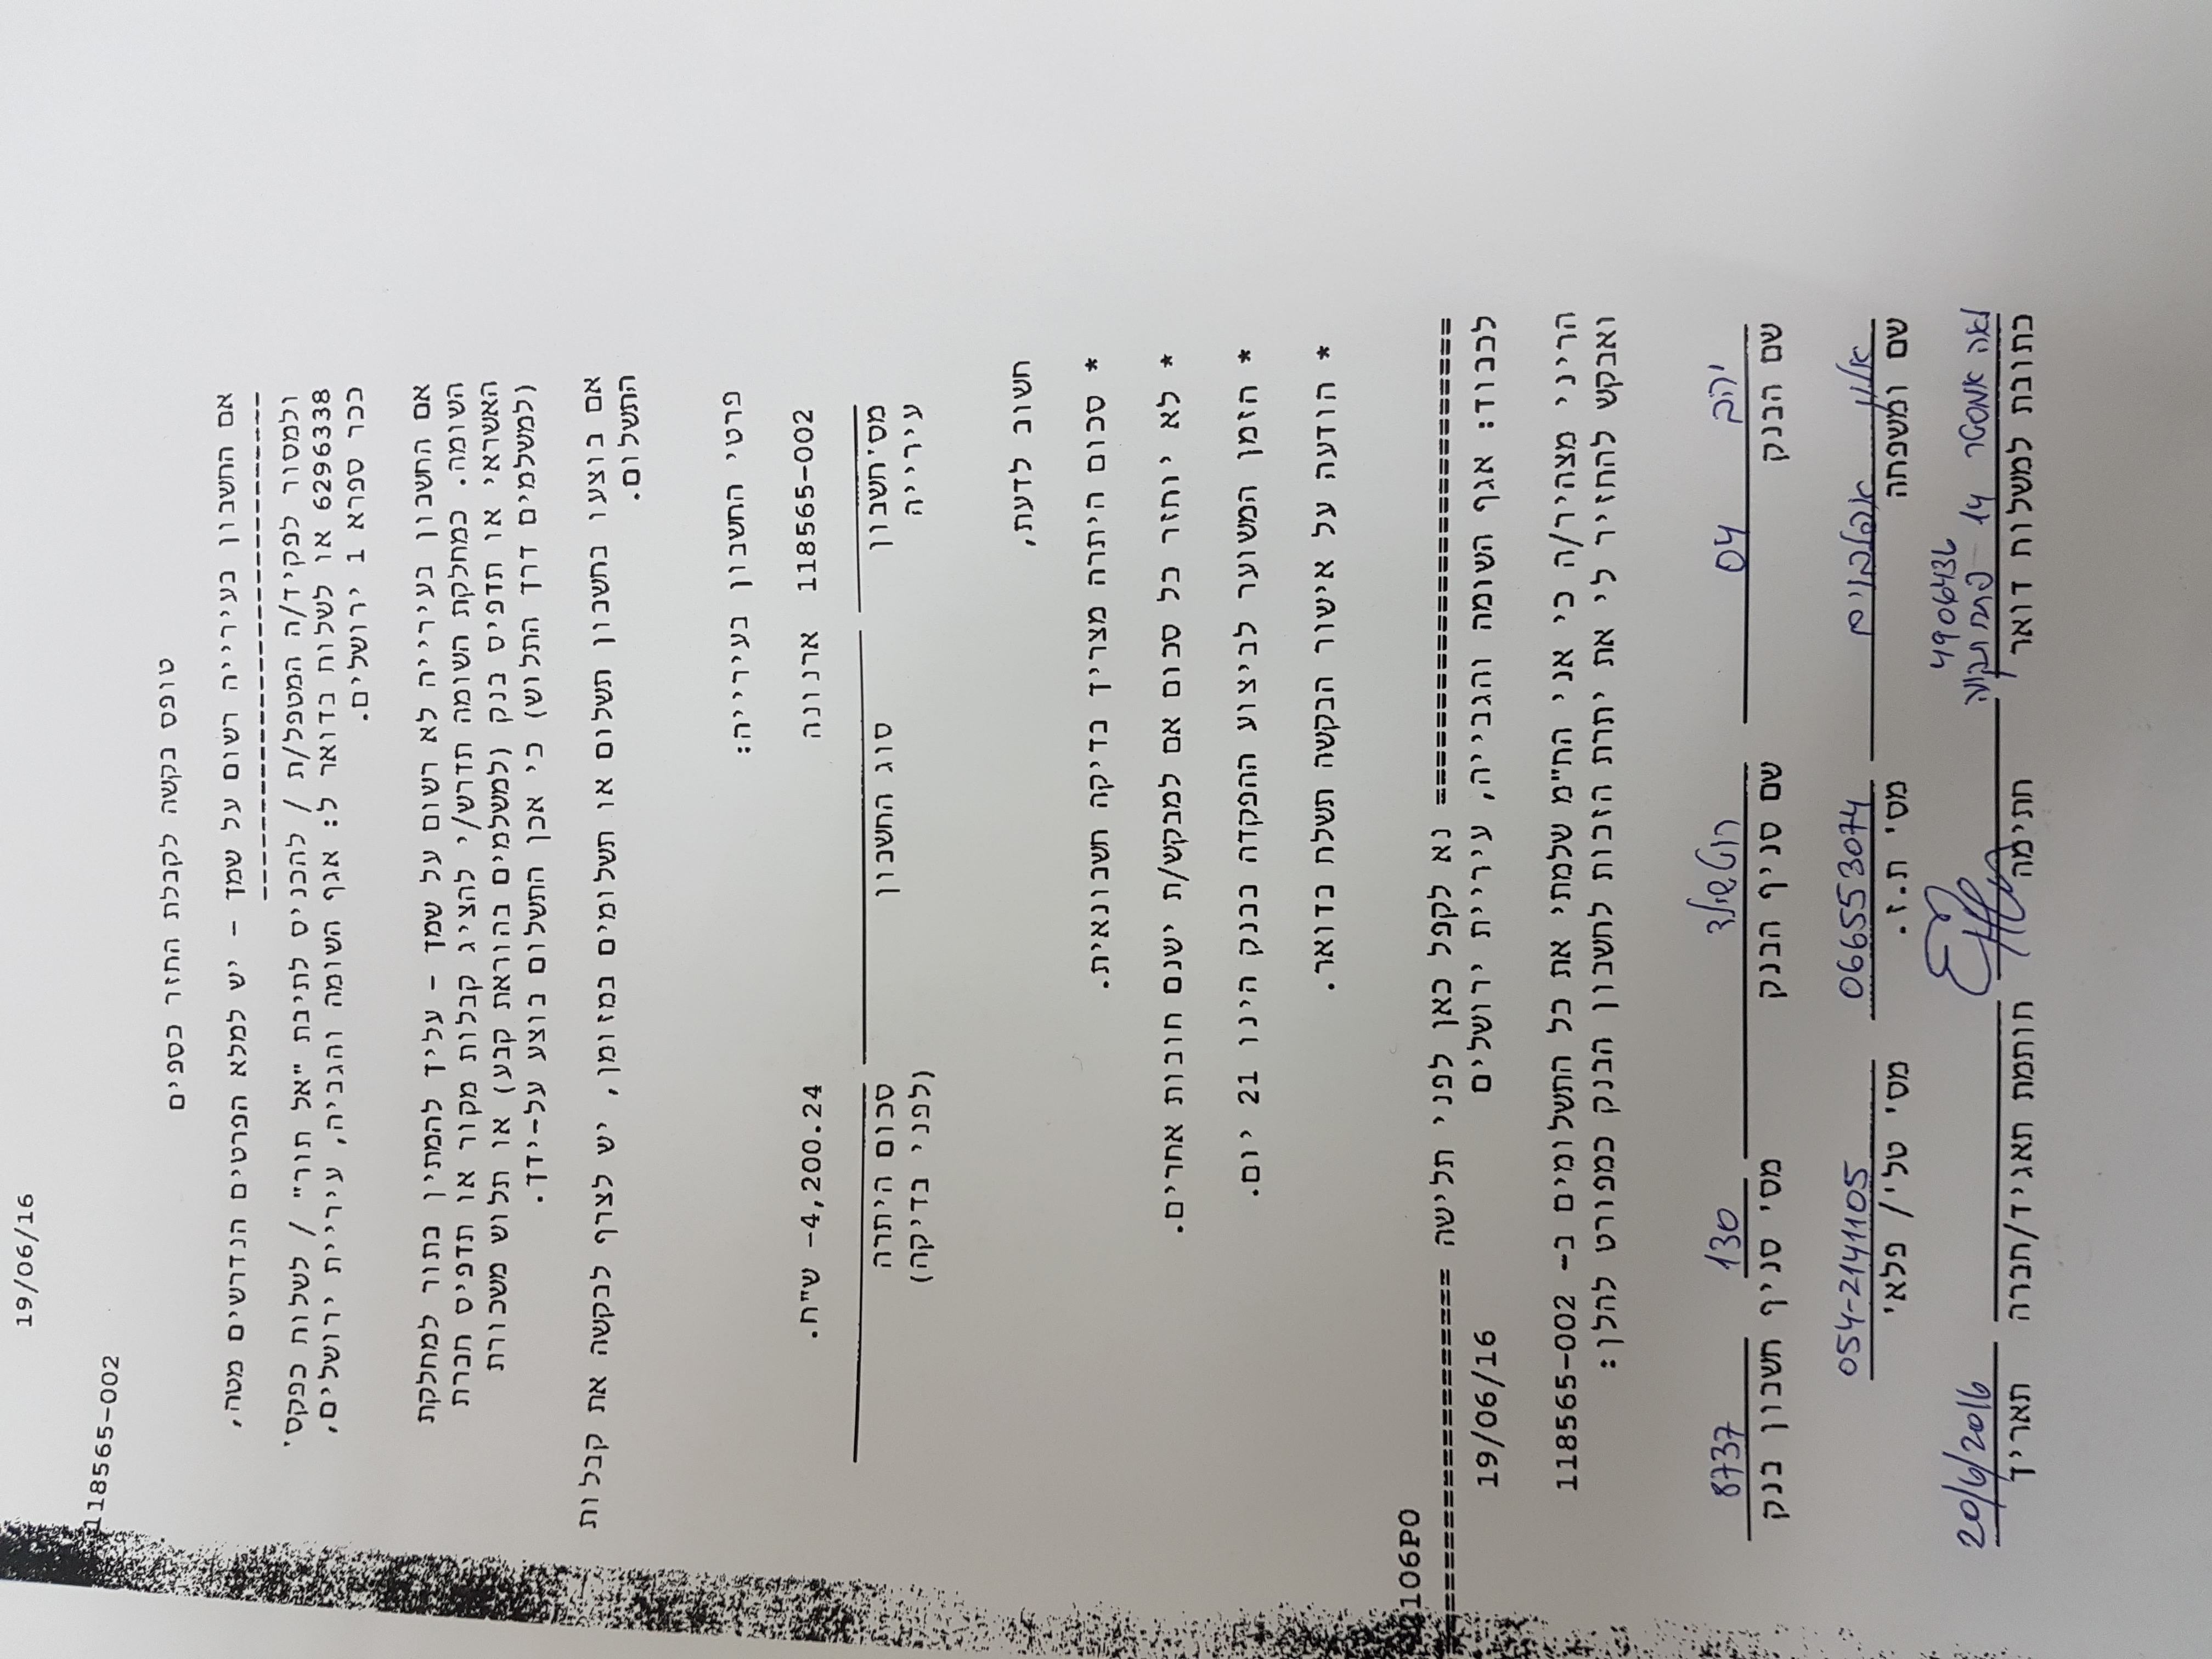 19/06/16
118565-002
טופס בקשה לקבלת החזר כספים
אם החשבון בעירייה רשום על שמך - יש למלא הפרטים הנדרשים מטה,
ולמסור לפקיד/ה המטפל/ת / להכניס לתיבת "אל תור" / לשלוח כפקס'
6296338 או לשלוח בדואר ל: אגף השומה והגביה, עיריית ירושלים,
ככר ספרא 1 ירושלים.
אם החשבון בעירייה לא רשום על שמך - עליך להמתין בתור למחלקת
השומה. כמחלקת השומה תדרש/י להציג קבלות מקור או תדפיס חברת
האשראי או תדפיס בנק (למשלמים בהוראת קבע) או תלוש משכורת
(למשלמים דרך התלוש) כי אכן התשלום בוצע על-ידך.
אם בוצעו בחשבון תשלום או תשלומים במזומן, יש לצרף לבקשה את קבלות
התשלום.
פרטי החשבון בעירייה:
118565-002 ארנונה 4,200.24- ש"ח.
מס'חשבון סוג החשבון סכום היתרה
עירייה (לפני בדיקה)
חשוב לדעת,
* סכום היתרה מצריך בדיקה חשבונאית.
* לא יוחזר כל סכום אם למבקש/ת ישנם חובות אחרים.
* הזמן המשוער לביצוע ההפקדה בבנק הינו 21 יום.
* הודעה על אישור הבקשה תשלח בדואר.
106P0
========================= נא לקפל כאן לפני תלישה ===================
לכבוד: אגף השומה והגבייה, עיריית ירושלים 19/06/16
הריני מצהיר/ה כי אני הח"מ שלמתי את כל התשלומים ב- 118565-002
ואבקש להחזיר לי את יתרת הזכות לחשבון הבנק כמפורט להלן:
יהב 04 רוטשילד 130 8737
שם הבנק שם סניף הבנק מס' סניף חשבון בנק
אלון 066553074 054-2141105
שם ומשפחה מס' ת.ז. מס' טל'/ פלא'
4906436
לאה אמסטר 14 פתח תקווה 20/6/2016
כתובת למשלוח דואר חתימה חותמת תאגיד/חברה תאריך